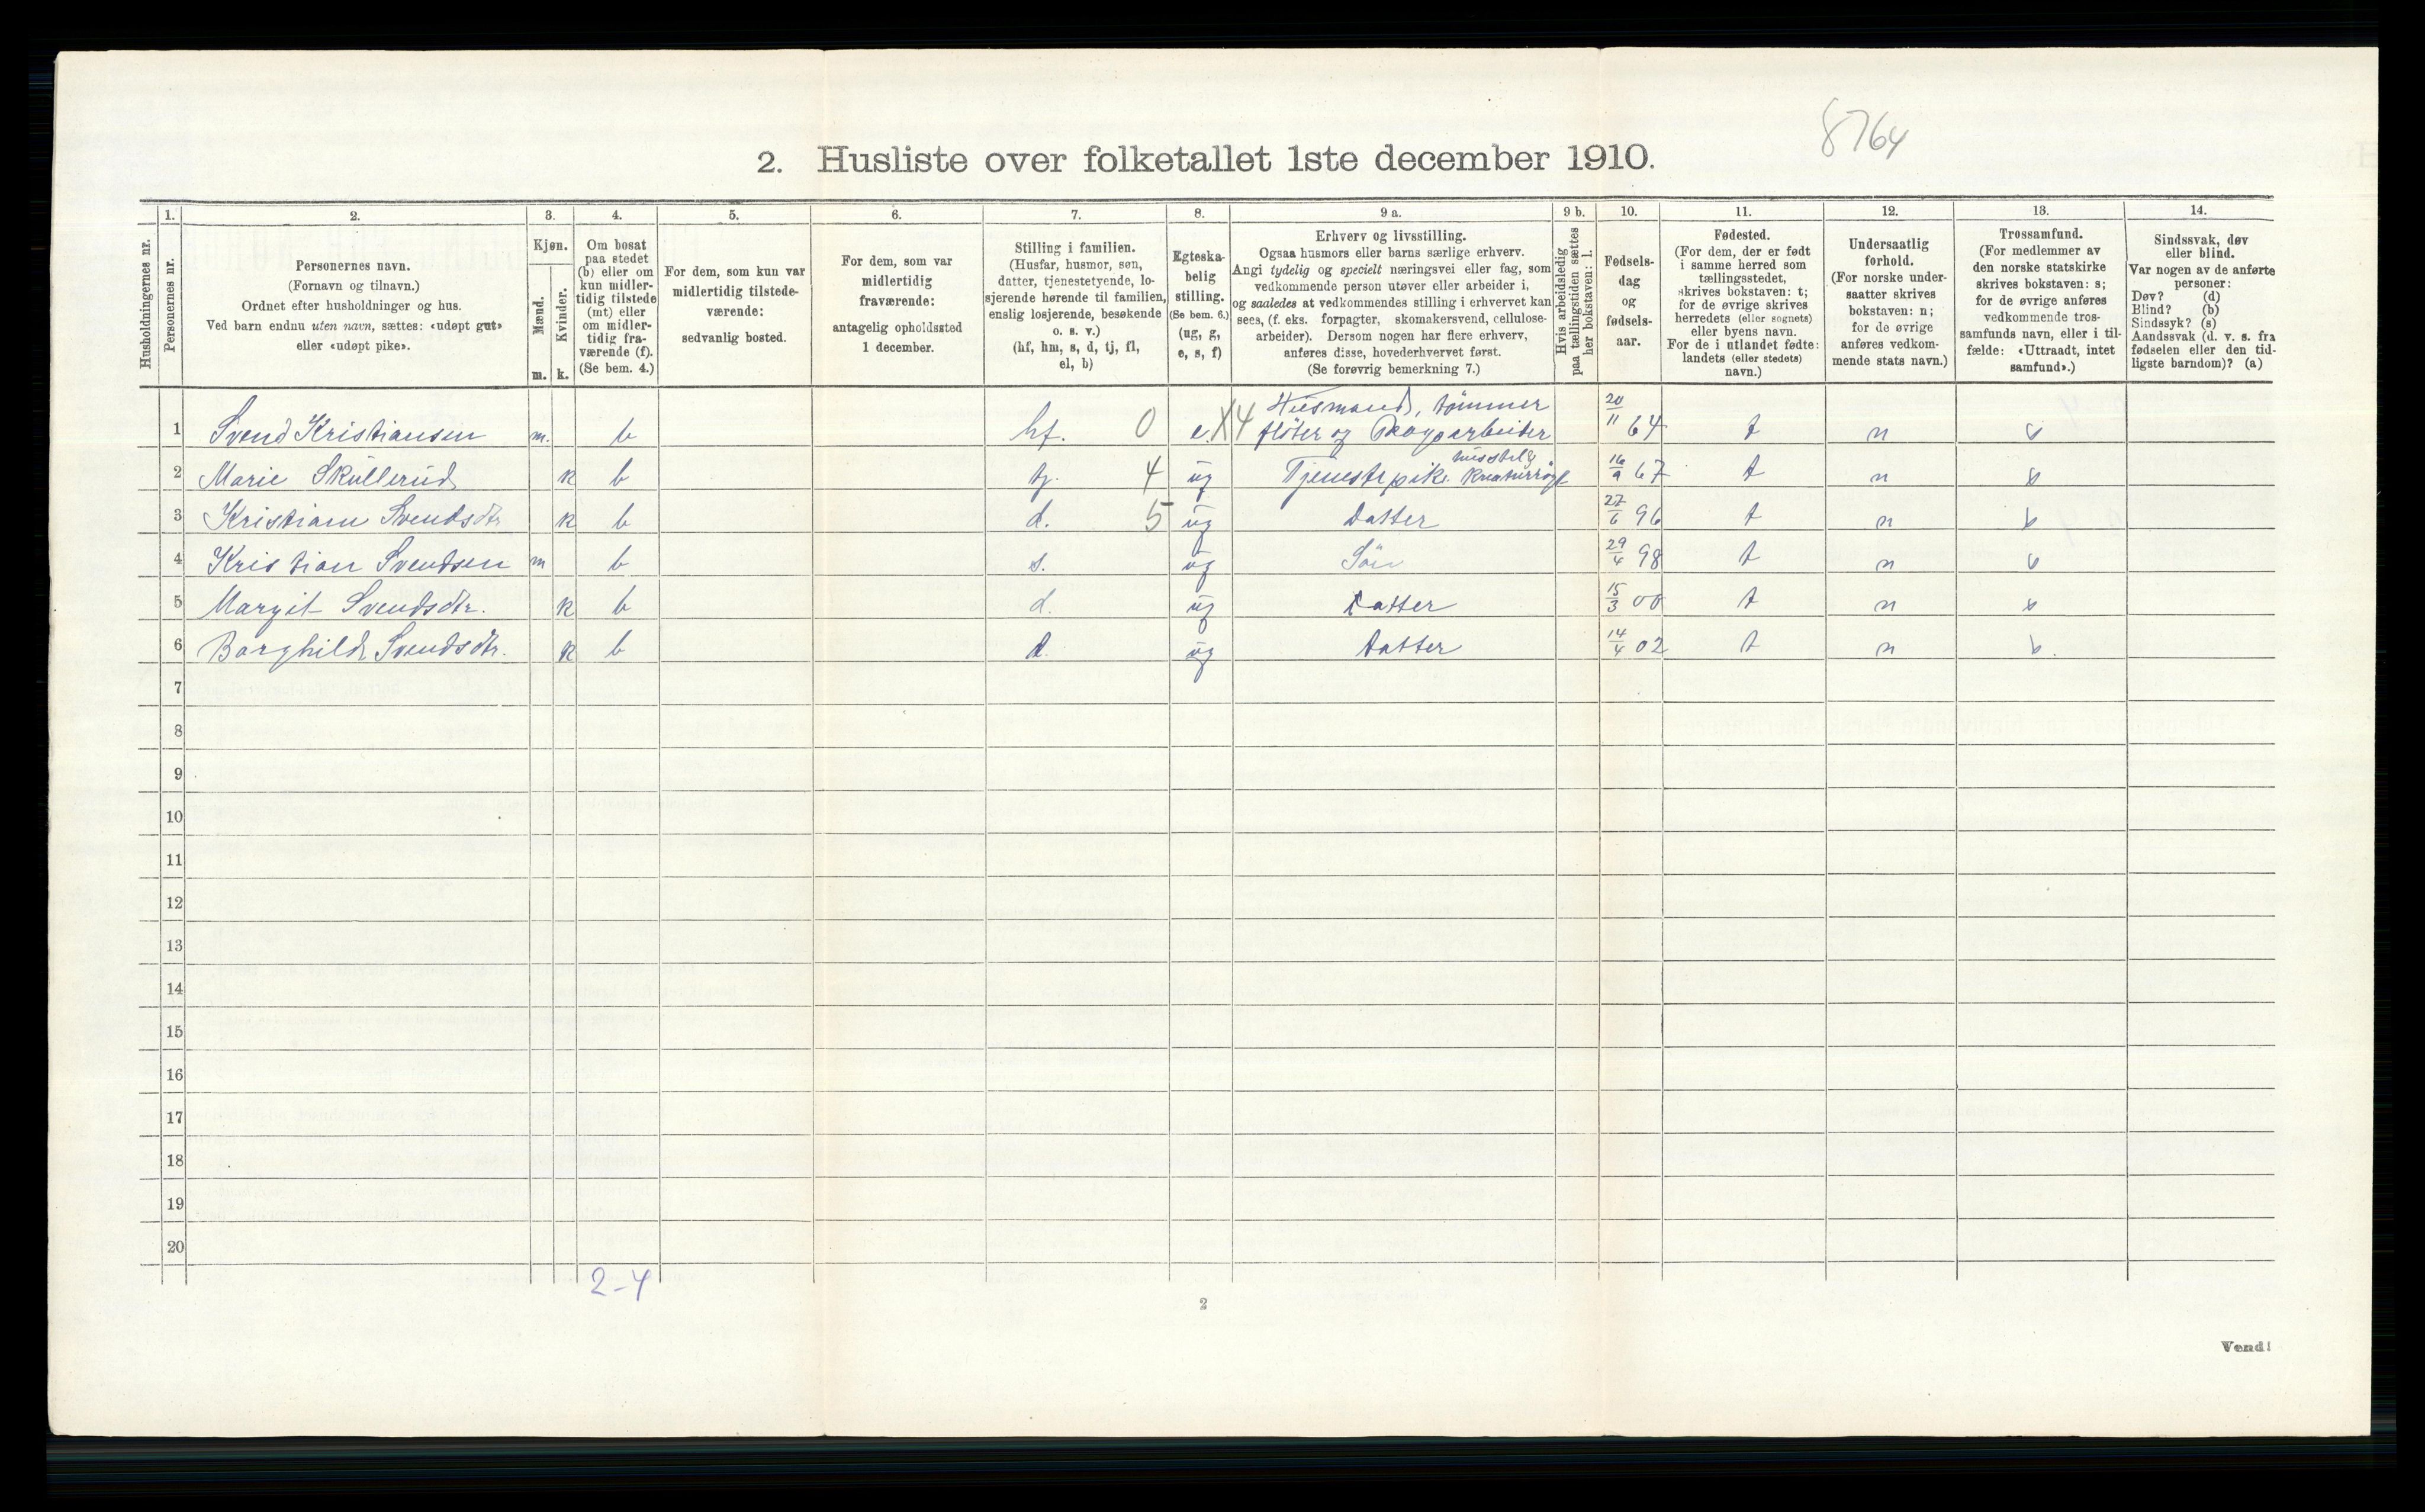 8764
2. Husliste over folketallet 1ste december 1910.
Husholdningernes nr.
1. 2. 3. 4. 5. 6. 7. 8. 9 a. 9 b. 10. 11. 12. 13. 14.
Personernes nr.
Personernes navn.
(Fornavn og tilnavn.)
Ordnet efter husholdninger og hus.
Ved barn endnu uten navn, sættes: «udøpt gut»
eller «udøpt pike».
Kjøn.
Mænd.
Kvinder.
m. k.
Om bosat
paa stedet
(b) eller om
kun midler-
tidig tilstede
(mt) eller
om midler-
tidig fra-
værende (f).
(Se bem. 4.)
For dem, som kun var
midlertidig tilstede-
værende:
sedvanlig bosted.
For dem, som var
midlertidig
fraværende:
antagelig opholdssted
1 december.
Stilling i familien.
(Husfar, husmor, søn,
datter, tjenestetyende, lo-
sjerende hørende til familien,
enslig losjerende, besøkende
o. s. v.)
(hf, hm, s, d, tj, fl,
el, b)
Egteska-
belig
stilling.
(Se bem. 6.)
(ug, g,
e, s, f)
Erhverv og livsstilling.
Ogsaa husmors eller barns særlige erhverv.
Angi tydelig og specielt næringsvei eller fag, som
vedkommende person utøver eller arbeider i,
og saaledes at vedkommendes stilling i erhvervet kan
sees, (f. eks. forpagter, skomakersvend, cellulose-
arbeider). Dersom nogen har flere erhverv,
anføres disse, hovederhvervet først.
(Se forøvrig bemerkning 7.)
Hvis arbeidsledig
paa tællingstiden sættes
her bokstaven: l.
Fødsels-
dag
og
fødsels-
aar.
Fødested.
(For dem, der er født
i samme herred som
tællingsstedet,
skrives bokstaven: t;
for de øvrige skrives
herredets (eller sognets)
eller byens navn.
For de i utlandet fødte:
landets (eller stedets)
navn.)
Undersaatlig
forhold.
(For norske under-
saatter skrives
bokstaven: n;
for de øvrige
anføres vedkom-
mende stats navn.)
Trossamfund.
(For medlemmer av
den norske statskirke
skrives bokstaven: s;
for de øvrige anføres
vedkommende tros-
samfunds navn, eller i til-
fælde: «Uttraadt, intet
samfund».)
Sindssvak, døv
eller blind.
Var nogen av de anførte
personer:
Døv? (d)
Blind? (b)
Sindssyk? (s)
Aandssvak (d. v. s. fra
fødselen eller den tid-
ligste barndom)? (a)
Husmand, tömmer
1 Svend Kristiansen m. b hf. 0 e X4 flöter og Skogsarbeider 20/11 64 t n s
2 Marie Skullerud k b tj. 4 ug Tjenestepike husstel & Kreaturrögt 16/9 67 t n s
3 Kristiane Svendsdtr k b d. 5 ug Datter 27/6 96 t n s
4 Kristian Svendsen m b s. ug Sön 29/4 98 t n s
5 Margit Svendsdtr. k b d. ug Datter 15/3 00 t n s
6 Borghild Svendsdtr. k b d. ug Datter 14/4 02 t n s.
7
8
9
10
11
12
13
14
15
16
17
18
19
20
2-4
2
Vend!